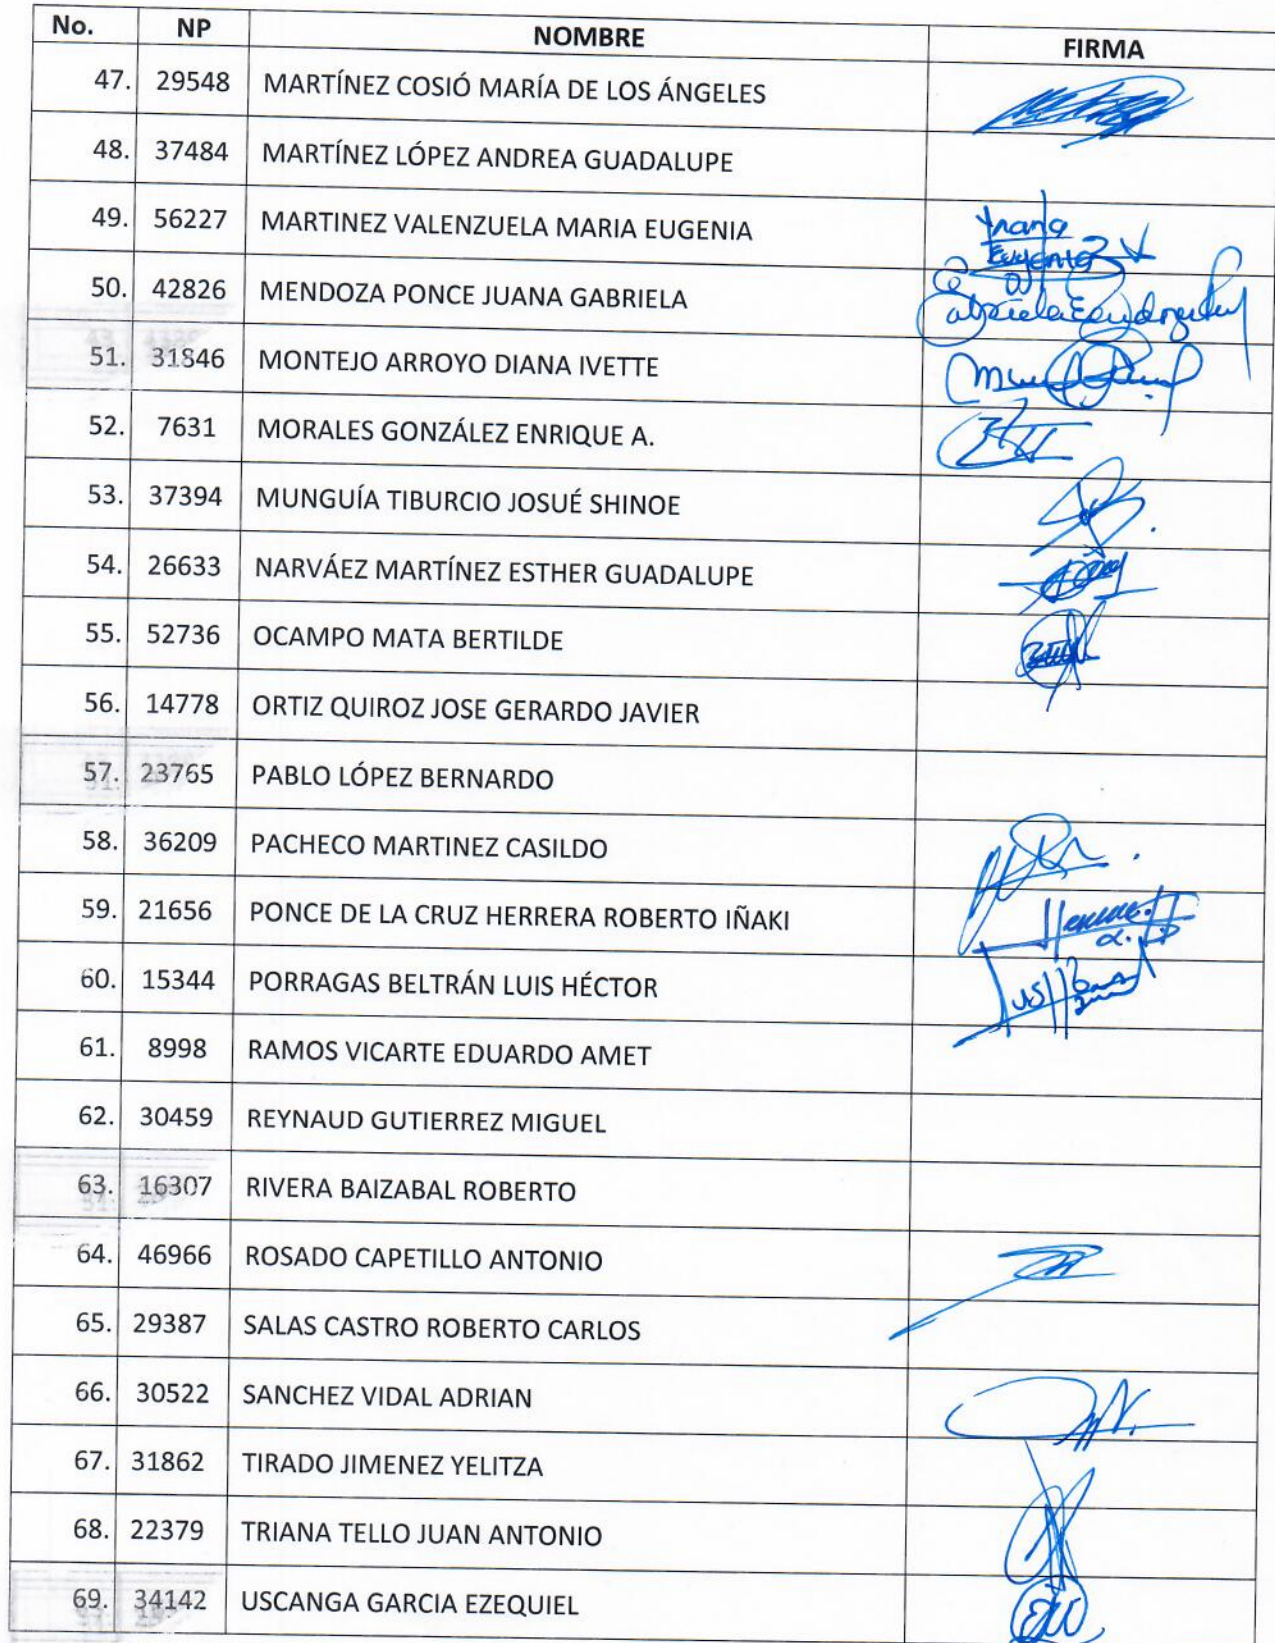 No. NP NOMBRE FIRMA
47. 29548 MARTÍNEZ COSIÓ MARÍA DE LOS ÁNGELES
48. 37484 MARTÍNEZ LÓPEZ ANDREA GUADALUPE
49. 56227 MARTINEZ VALENZUELA MARIA EUGENIA
50. 42826 MENDOZA PONCE JUANA GABRIELA
51. 31846 MONTEJO ARROYO DIANA IVETTE
52. 7631 MORALES GONZÁLEZ ENRIQUE A.
53. 37394 MUNGUÍA TIBURCIO JOSUÉ SHINOE
54. 26633 NARVÁEZ MARTÍNEZ ESTHER GUADALUPE
55. 52736 OCAMPO MATA BERTILDE
56. 14778 ORTIZ QUIROZ JOSE GERARDO JAVIER
57. 23765 PABLO LÓPEZ BERNARDO
58. 36209 PACHECO MARTINEZ CASILDO
59. 21656 PONCE DE LA CRUZ HERRERA ROBERTO IÑAKI
60. 15344 PORRAGAS BELTRÁN LUIS HÉCTOR
61. 8998 RAMOS VICARTE EDUARDO AMET
62. 30459 REYNAUD GUTIERREZ MIGUEL
63. 16307 RIVERA BAIZABAL ROBERTO
64. 46966 ROSADO CAPETILLO ANTONIO
65. 29387 SALAS CASTRO ROBERTO CARLOS
66. 30522 SANCHEZ VIDAL ADRIAN
67. 31862 TIRADO JIMENEZ YELITZA
68. 22379 TRIANA TELLO JUAN ANTONIO
69. 34142 USCANGA GARCIA EZEQUIEL